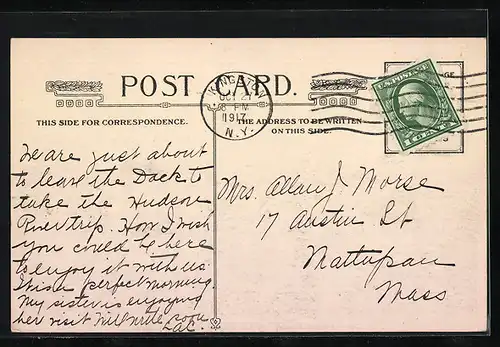 POST CARD.
KINGSTON
OCT 21
8 PM
1917
N.Y.
U.S. POSTAGE
THIS SIDE FOR CORRESPONDENCE.
THE ADDRESS TO BE WRITTEN
ON THIS SIDE.
We are just about
to leave the Dock to
take the Hudson
River trip. How I wish
you could be here
to enjoy it with us
this perfect morning.
My sister is enjoying
her visit. Will write soon
L.A.C.
Mrs. Allan J. Morse
17 Austin St
Mattapan
Mass